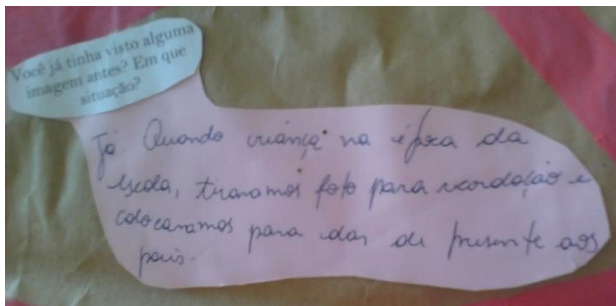 Você já tinha visto alguma
imagem antes? Em que
situação?
Já. Quando criança na época da
escola, tiravamos foto para recordação e
colocavamos para dar de presente aos
pais.